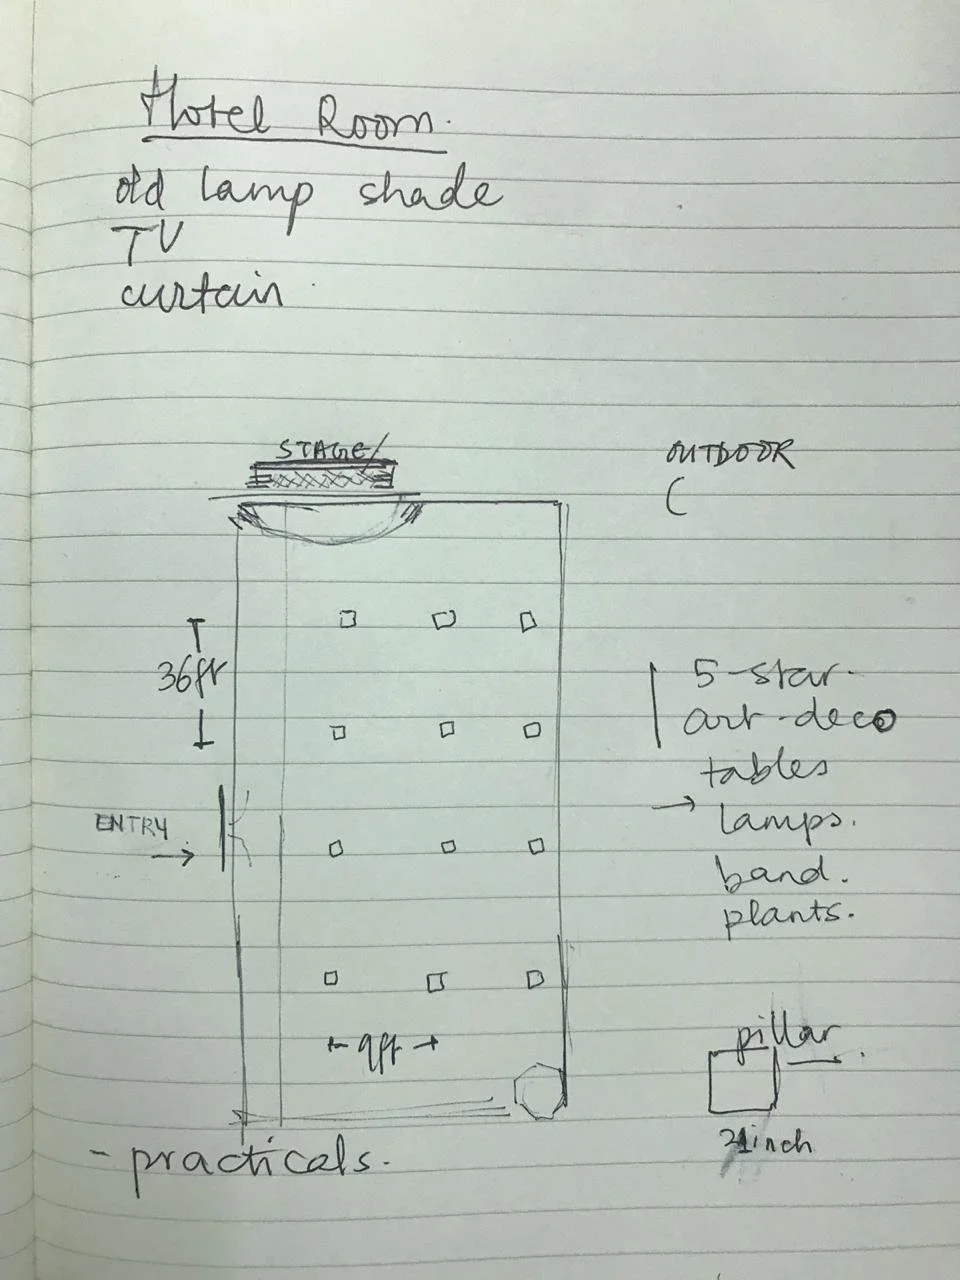 Hotel Room.
old lamp shade
TV
curtain
STAGE
OUTDOOR
36ft
5-star.
art-deco
tables
lamps.
band.
plants.
ENTRY
9ft
pillar
21inch
- practicals.